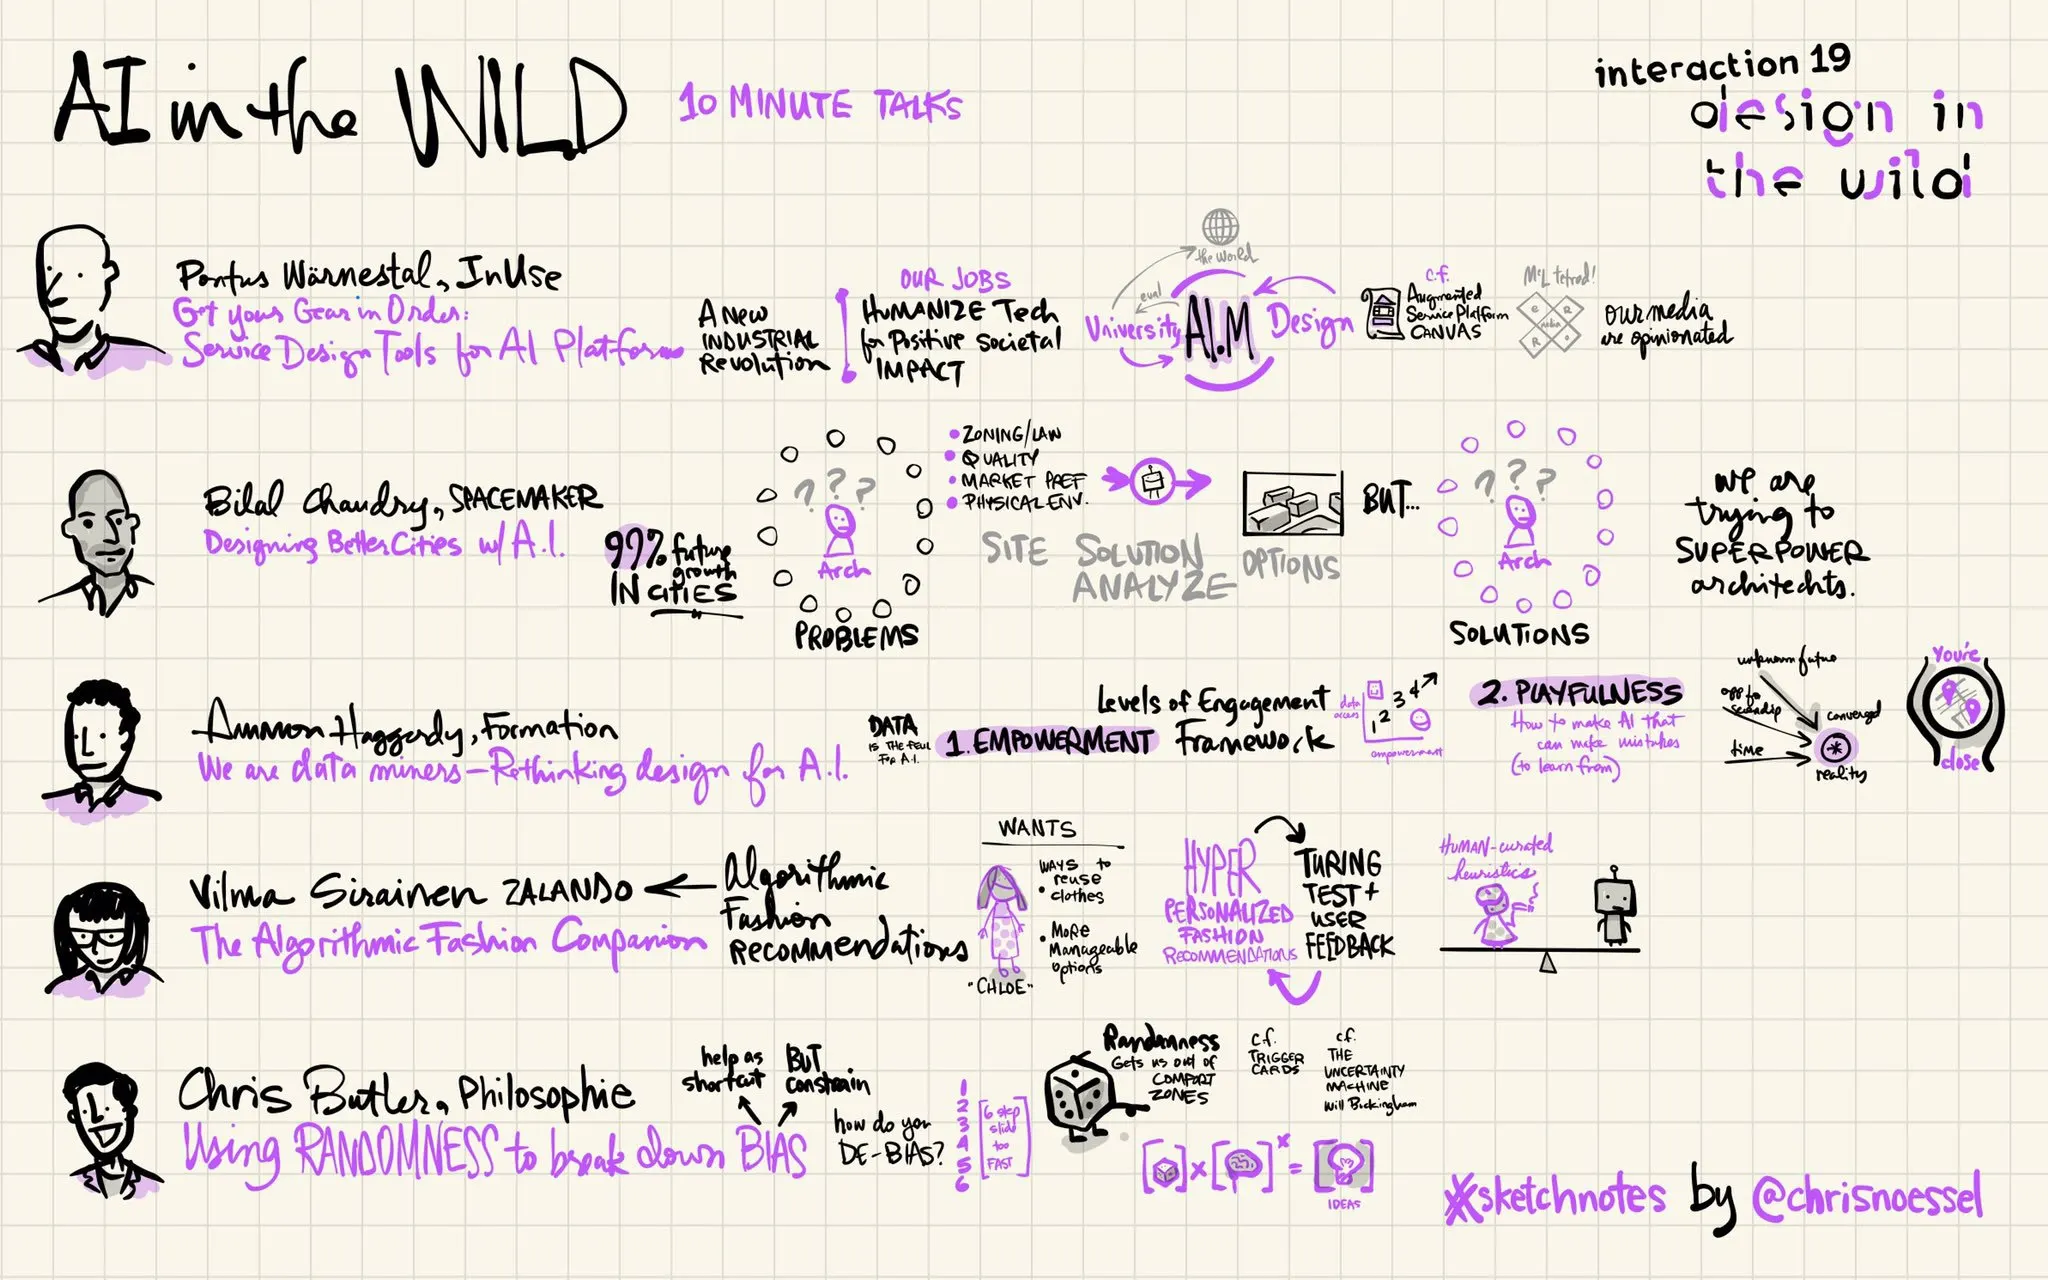 AI in the WILD
10 MINUTE TALKS
interaction 19
design in
the wild
Pontus Wärnestal, InUse
Get your Gear in Order:
Service Design Tools for AI Platforms
A New
INDUSTRIAL
Revolution
OUR JOBS
HUMANIZE Tech
for Positive Societal
IMPACT
the world
eval
University
AI.M
Design
c.f.
Augmented
Service Platform
CANVAS
McL tetrad!
E
R
media
R
O
our media
are opinionated
Bilal Chaudry, SPACEMAKER
Designing Better Cities w/ A.I.
97% future
growth
IN CITIES
? ? ?
Arch
PROBLEMS
ZONING/LAW
QUALITY
MARKET PREF
PHYSICAL ENV.
SITE SOLUTION
ANALYZE
OPTIONS
BUT...
? ? ?
Arch
SOLUTIONS
we are
trying to
SUPERPOWER
architechts.
Ammon Haggerty, Formation
We are data miners—Rethinking design for A.I.
DATA
IS THE FUEL
FOR A.I.
1. EMPOWERMENT
Levels of Engagement
Framework
data
access
1 2 3 4
empowerment
2. PLAYFULNESS
How to make AI that
can make mistakes
(to learn from)
unknown future
time
converged
reality
You're
close
Vilma Sirainen ZALANDO
The Algorithmic Fashion Companion
Algorithmic
Fashion
RECOMMENDATIONS
WANTS
WAYS to
reuse
clothes
MORE
Manageable
options
"CHLOE"
HYPER
PERSONALIZED
FASHION
RECOMMENDATIONS
TURING
TEST +
USER
FEEDBACK
HUMAN-curated
heuristics
Chris Butler, Philosophie
Using RANDOMNESS to break down BIAS
help as
shortcut
BUT
constrain
how do you
DE-BIAS?
1
2
3
4
5
6
6 step
slide
too
FAST
Randomness
Gets us out of
COMFORT
ZONES
c.f.
TRIGGER
CARDS
c.f.
THE
UNCERTAINTY
MACHINE
Will Buckingham
x
x
=
IDEAS
#sketchnotes by @chrisnoessel